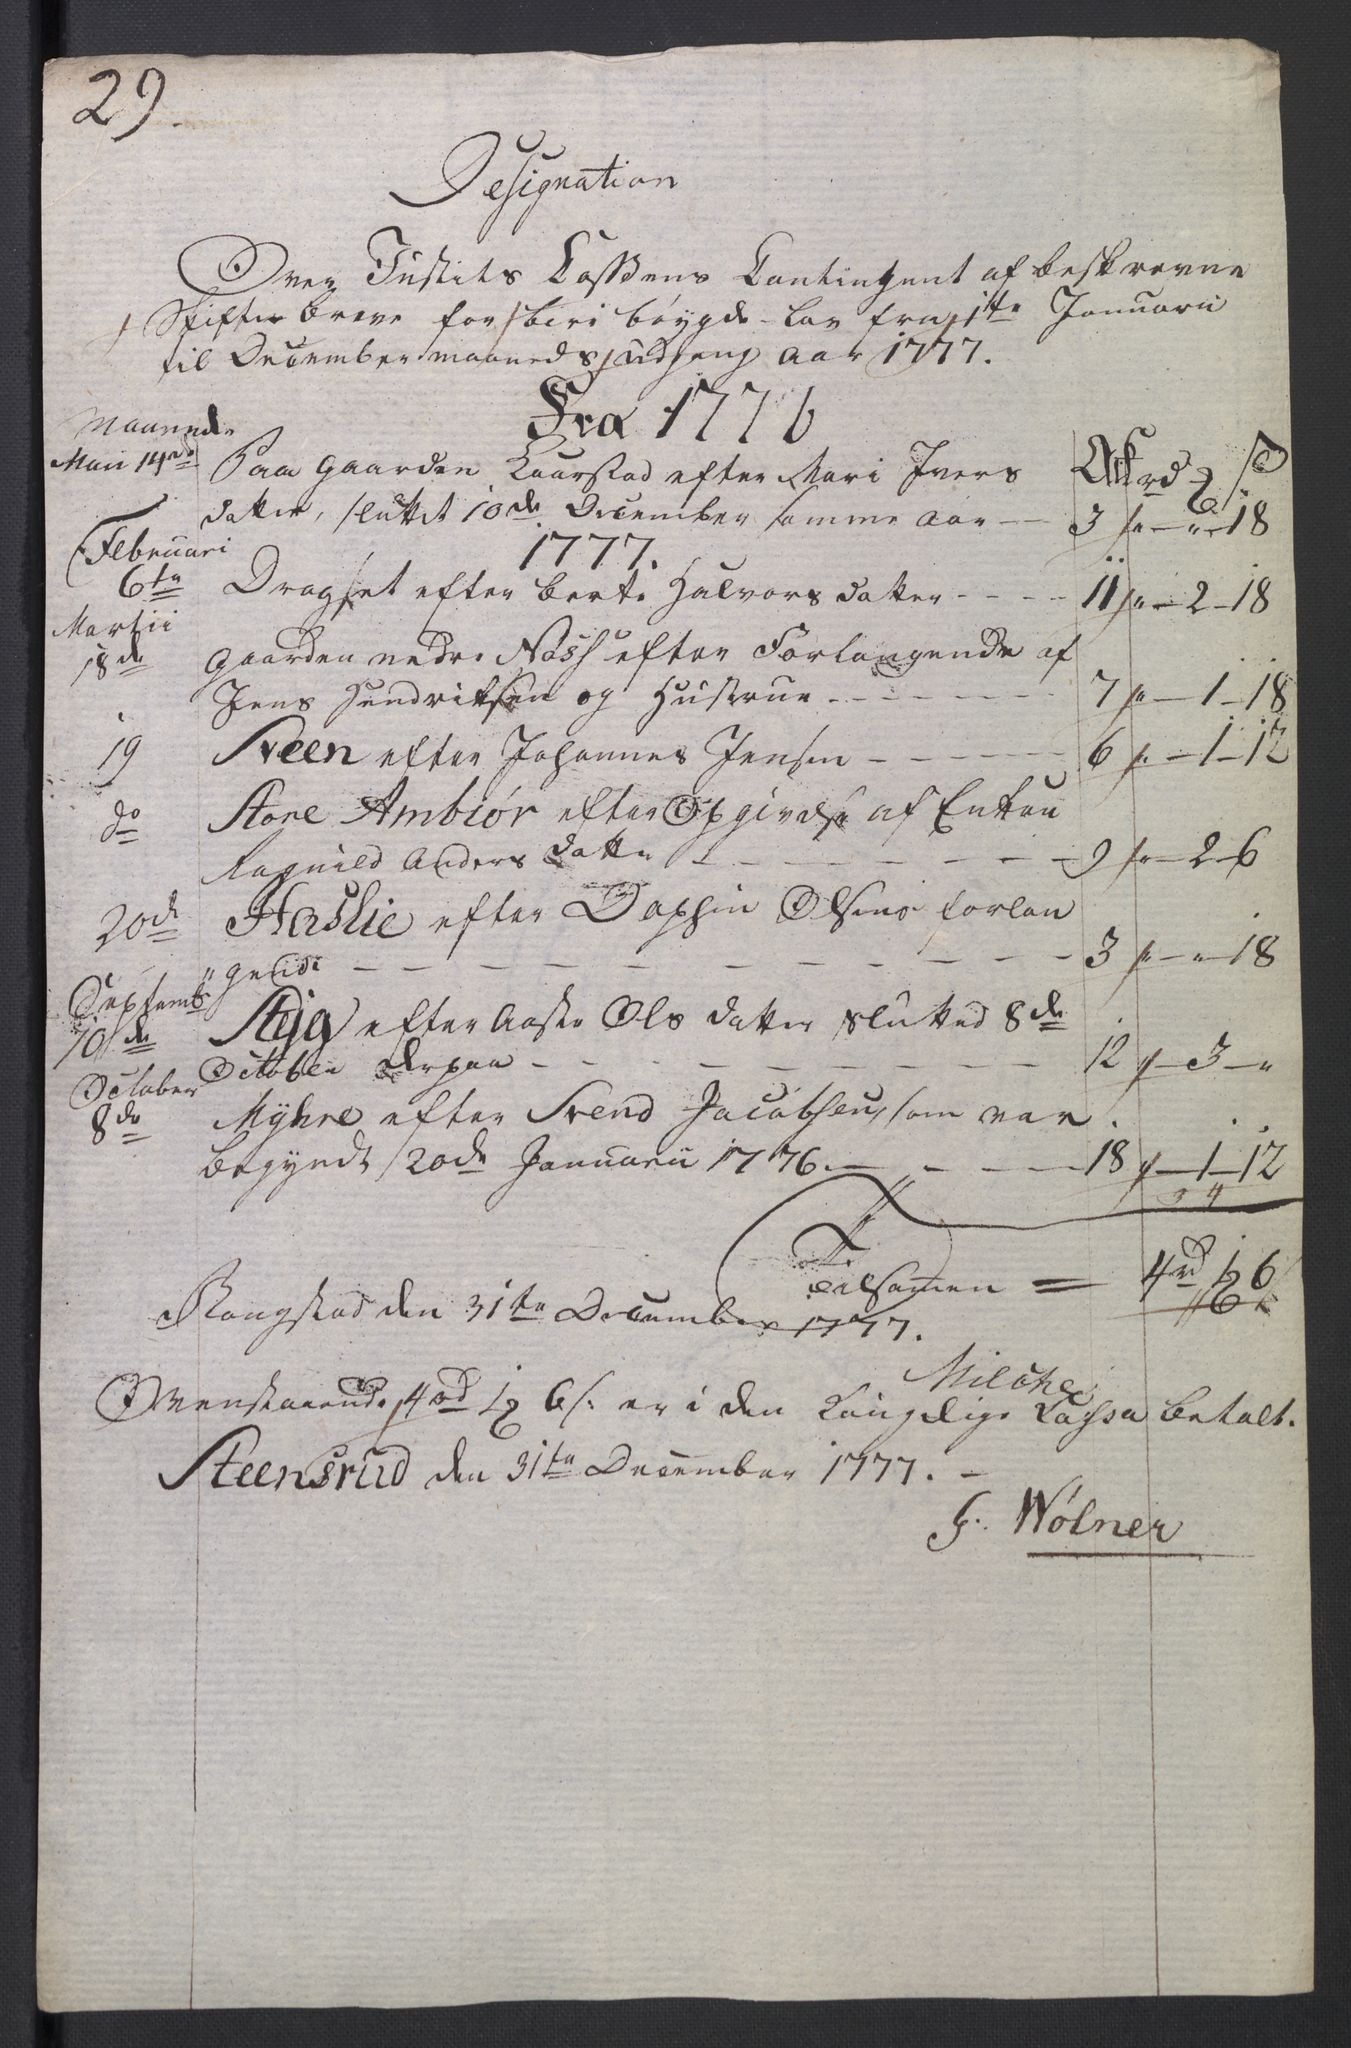 29.
Designation
Over Justits Cassens Contingent af beskrevne
Skifte breve for biri bøygde-lav fra 1te Januarii
til December maaneds udgang Aar 1777.
Fra 1776
Maaned
Ark rd
Maii 14de Paa gaarden Kaarstad efter Mari Ivers
datter, sluttet 10de December samme Aar — 3 - " - 18
1777.
Februari
6te Dragset efter berte Halvors datter - - - - 11 - 2 - 18
Martii
18de gaarden nedre Næss efter Forlangende af
Jens Hendriksen og Hustrue - - - - - - 7 - 1 - 18
19 Sveen efter Johannes Jensen - - - - - 6 - 1 - 12
do Store Ambiør efter Opgivelse af Enken
Ragnild Anders datter - - - - - - - 9 - 2 - 6
20de Haslie efter Olsens forlan
gende - - - - - - - - - - 3 - " - 18
Septemb
10de Styg efter Aaste Ols datter slutted 8de
October derpaa - - - - - - - - 12 - 3 - "
October
8de Myhre efter Svend Jacobsen, som var
begyndt 20de Januarii 1776. - - - - 18 - 1 - 12
3 4
Tilsamen = 4rd 1 6
Kongstad den 31te December 1777.
Ovenstaaende 4rd 1 6s. er i den Kongelige Cassa betalt.
Steensrud den 31te December 1777. -
Wølner